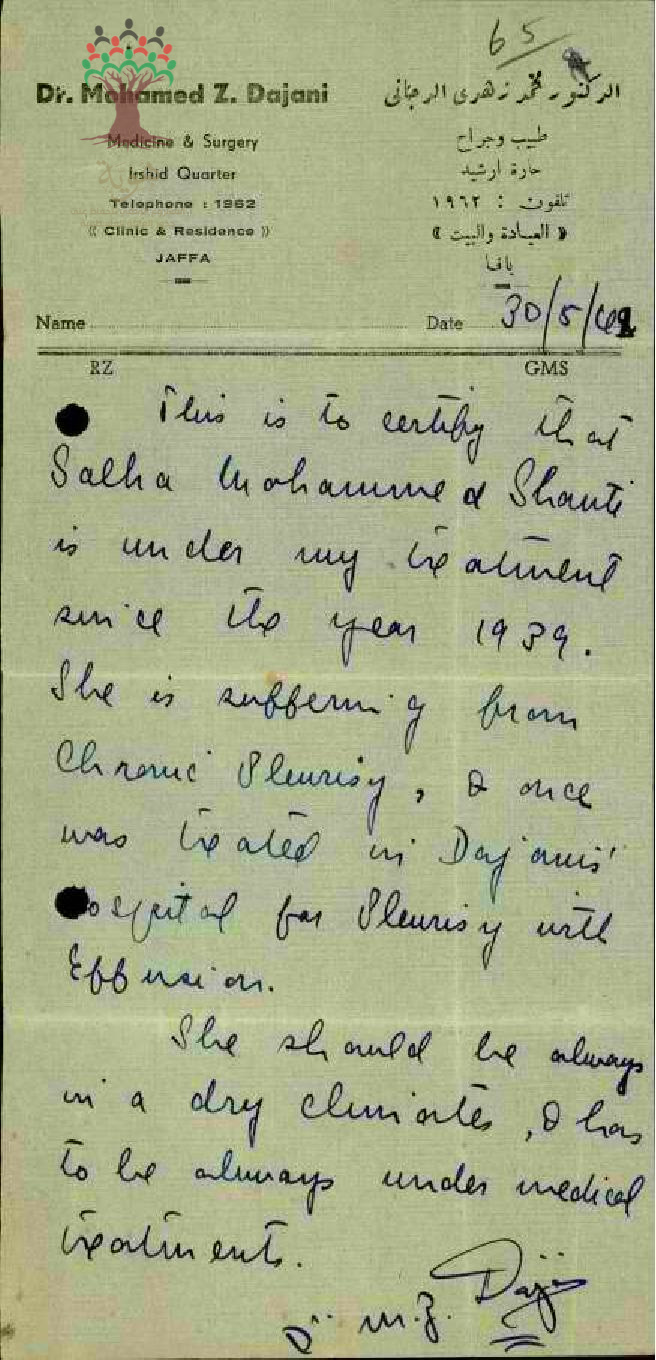 65
Dr. Mohamed Z. Dajani
الدكتور محمد زهدى الدجانى
Medicine & Surgery
طبيب وجراح
Irshid Quarter
حارة ارشيد
Telephone : 1962
تلفون : ١٩٦٢
(( Clinic & Residence ))
« العيادة والبيت »
JAFFA
يافا
Name Date 30/5/
RZ GMS
This is to certify that
Salha Mohammed Shanti
is under my treatment
since the year 1939.
She is suffering from
Chronic Pleurisy, & once
was treated in Dajanis'
Hospital for Pleurisy with
Effusion.
She should be always
in a dry climates, & has
to be always under medical
treatments.
Dr. M.Z. Dajani